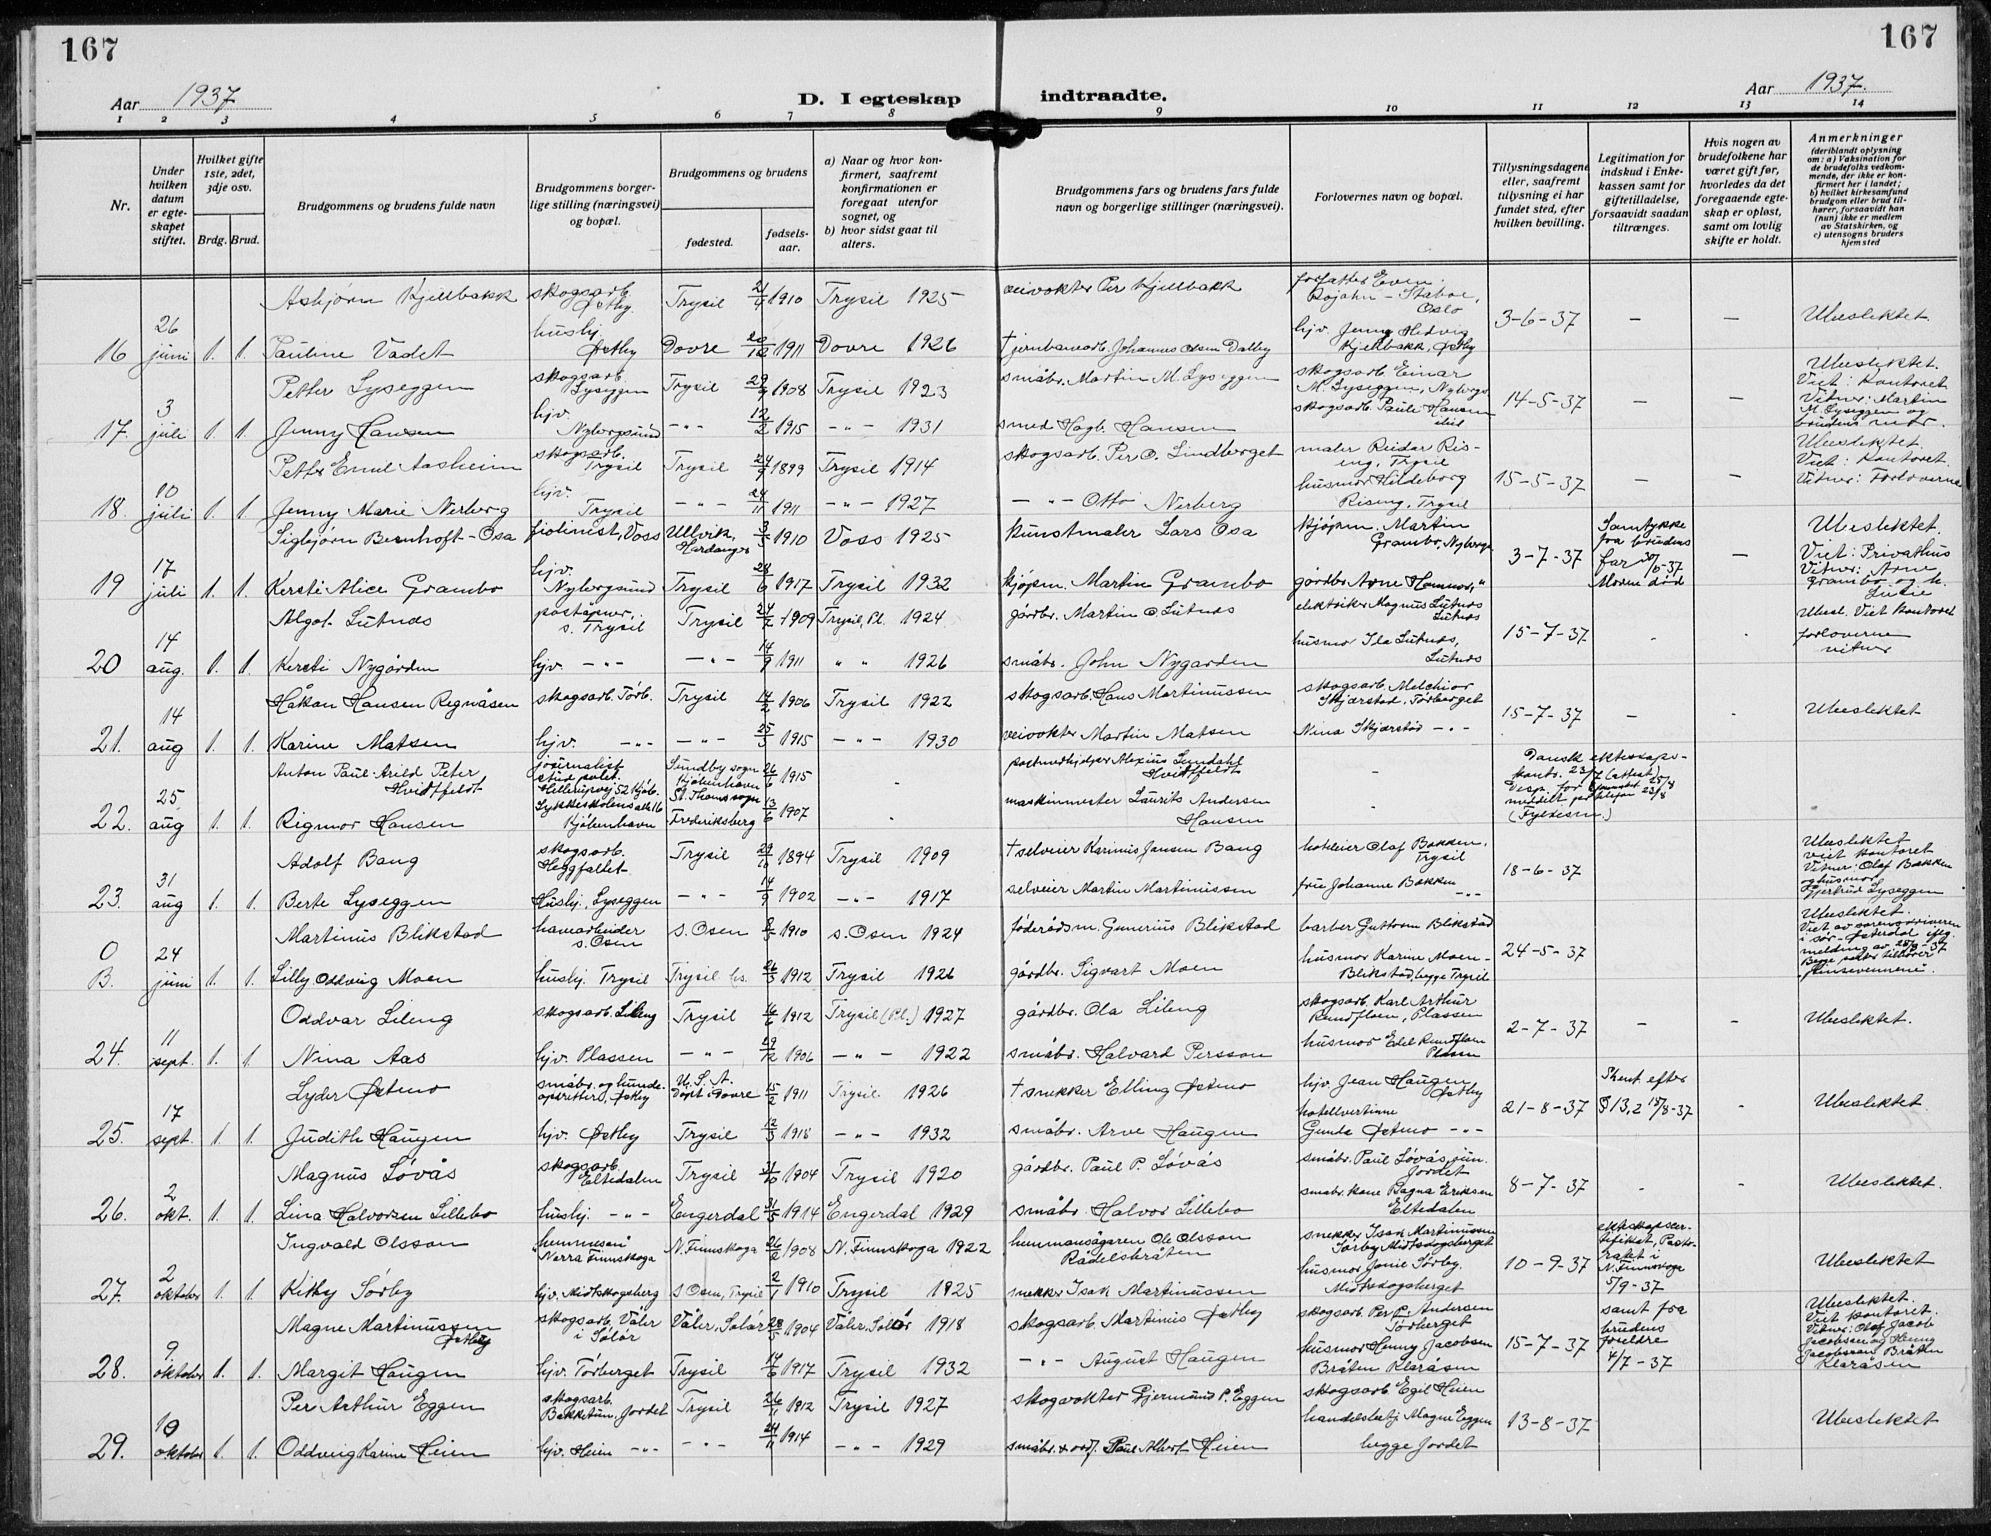 167
167
Aar 1937
D. I egteskap indtraadte.
Aar 1937.
1 2 3 4 5 6 7 8 9 10 11 12 13 14
Nr.
Under hvilken datum er egteskapet stiftet.
Hvilket gifte 1ste, 2det, 3dje osv.
Brdg. Brud.
Brudgommens og brudens fulde navn
Brudgommens borgerlige stilling (næringsvei) og bopæl.
Brudgommens og brudens
fødested.
fødselsaar.
a) Naar og hvor konfirmert, saafremt konfirmationen er foregaat utenfor sognet, og
b) hvor sidst gaat til alters.
Brudgommens fars og brudens fars fulde navn og borgerlige stillinger (næringsvei).
Forlovernes navn og bopæl.
Tillysningsdagene eller, saafremt tillysning ei har fundet sted, efter hvilken bevilling.
Legitimation for indskud i Enkekassen samt for giftetilladelse, forsaavidt saadan tiltrænges.
Hvis nogen av brudefolkene har været gift før, hvorledes da det foregaaende egteskap er opløst, samt om lovlig skifte er holdt.
Anmerkninger
(deriblandt oplysning om: a) Vaksination for de brudefolks vedkommende, der ikke er konfirmert her i landet; b) hvilket kirkesamfund brudgom eller brud tilhører, forsaavidt han (hun) ikke er medlem av Statskirken, og c) utensogns bruders hjemsted
Asbjørn Kjellbakk skogsarb. Østby Trysil 21/4 1910 Trysil 1925 veivokter Per Kjellbakk forfatter Even Bojahn - Stabae, Oslo
16 26 juni 1. 1. Pauline Vadet husbj. Østby Dovre 20/12 1911 Dovre 1926 † jernbanearb. Johannes Olsen Dalby hjv. Jenny Hedvig Kjellbakk, Østby 3-6-37 – – Ubeslektet.
Petter Lyseggen skogsarb. Lyseggen Trysil 1908 Trysil 1923 småbr. Martin M. Lyseggen skogsarb. Einar M. Lyseggen, Nybergs.
17. 3 juli 1. 1. Jenny Hansen hjv. Nybergsund -"- 12/2 1915 -"- 1931 smed Hagb. Hansen skogsarb. Paule Hansen 14-5-37 – – Ubeslektet. Viet: Kontoret Vitner: Martin M. Lyseggen og brudens mor.
Petter Emil Aasheim skogsarb. Trysil Trysil 24/9 1899 Trysil 1914 skogsarb. Per O. Lindberget maler Reidar Rising, Trysil
18. 10 juli 1. 1. Jenny Marie Nerberg hjv. Trysil -"- 24/11 1911 -"- 1927 -"- Otto Nerberg husmor Hildeborg Rising, Trysil 15-5-37 – – Ubeslektet. Viet: Kontoret. Vitner: Forloverne
Sigbjørn Bernhoft-Osa fiolinist, Voss Ullvik, Hardanger 1910 Voss 1925 kunstmaler Lars Osa kjøpm. Martin Grambo, Nybergs.
19 17 juli 1. 1. Kersti Alice Grambo hjv. Nybergsund Trysil 28/6 1917 Trysil 1932 kjøpm. Martin Grambo gårdbr. Arne 3-7-37 Samtykke fra brudens far 30/6-37 Moren død – Ubeslektet. Viet: Privathus Vitner: Arne Grambo og
Algot Lutnæs poståpner, s. Trysil Trysil 1909 Trysil, Pl. 1924 gårdbr. Martin O. Lutnæs elektriker Magnus Lutnes Lutnes
20 14 aug. 1. 1. Kersti Nygården hjv. -"- -"- 14/9 1911 " " 1926 småbr. John Nygarden husmor Ida Lutnes, Lutnes 15-7-37 - - Ubesl. Viet kontoret forloverne vitner
Håkan Hansen Regnåsen skogsarb. Törb. Trysil 14/2 1906 Trysil 1922 skogsarb. Hans Martinussen skogsarb. Melchior Skjærstad, Törberget
21. 14 aug 1. 1. Karine Matsen hjv. -"- -"- 25/3 1915 -"- 1930 veivokter Martin Matsen Nina Skjærstad -"- 15-7-37 – - Ubeslektet
Anton Paul Arild Peter Hvidtfeldt journalist stud. polit. Hellerupvej 52 Kjöb. Sundby sogn Kjöbenhavn 26/6 1915 - postmedhjelper Alexius Lundahl Hvidtfeldt -
22. 25 aug 1. 1. Rigmor Hansen Lykkeskolens alle 16 Kjöbenhavn St. Thomas sogn Frederiksberg 13/6 1907 - maskinmester Laurits Andersen Hansen - Dansk ekteskaps-kont. 23/7 (attest) meddelt per telefon 23/8
Adolf Bang skogsarb. Heggfallet Trysil 29/10 1894 Trysil 1909 † selveier Karinus Jansen Bang hoteleier Olaf Bakken, Trysil
23. 31 aug 1. 1. Berte Lyseggen Husbj. Lyseggen -"- 14/9 1902 -"- 1917 selveier Martin Martinussen frue Johanne Bakken -"- 18-6-37 Ubeslektet viet kontoret Vitner: Olaf Bakken og husmor Gjertrud Lyseggen
Martinus Blikstad havearbeider s. Osen s. Osen 1910 s. Osen 1924 föderådsm. Gunerius Blikstad barber Guttorm Blikstad
O B. 24 juni 1. 1. Lilly Oddveig Moen husbj. Trysil Trysil hs. 26/3 1912 Trysil 1926 gårdbr. Sigvart Moen husmor Karine Moen-Blikstad, begge Trysil 24-5-37 Ubeslektet. Viet av sorenskriveren i sør-Østerdal iflg. melding av 25/8-37 Begge parter tilhører pinsevennene.
Oddvar Lileng skogsarb. Lileng Trysil 1912 Trysil (Pl.) 1927 gårdbr. Ola Lileng skogsarb. Karl Arthur Rundfloen, Plassen
24. 11 sept. 1. 1. Nina Aas hjv. Plassen -"- 29/12 1906 -"- 1922 småbr. Halvard Persson husmor Edel Rundfloen Plassen 2-7-37 – – Ubeslektet.
Lyder Østmo småbr. og hundeopdretter, Østby U.S.A. Døpt i Dovre 15/2 1911 Trysil 1926 † snekker Elling Østmo hjv. Jean Haugen Østby
25. 17 sept. 1. 1. Judith Haugen hjv. Østby Trysil 12/3 1918 -"- 1932 småbr. Arve Haugen hotellvertinne Gunda Østmo -"- 21-8-37 Skent efter § 13,2 18/8-37 - Ubeslektet.
Magnus Løvås skogsarb. Eltedalen Trysil 21/10 1904 Trysil 1920 gårdbr. Paul P. Løvås småbr. Paul Løvås jun. Jordet
26. 2 okt. 1. 1. Lina Halvorsen Lillebo husbj. -"- Engerdal 1914 Engerdal 1929 småbr. Halvor Lillebo småbr. kone Ragna Eriksen Eltedalen 8-7-37 - - Ubeslektet.
Ingvald Olsson "hemmesøn" Norra Finnskoga N. Finnskoga 26/2 1908 N. Finnskoga 1922 hemmansägaren Ole Olsson Rådelsbråten snekker Isak Martinussen Sørby Midtskogsberget
27. 2 oktober 1. 1. Kitty Sørby hjv. Midtskogsberg S. Osen, Trysil 2/1 1910 Trysil 1925 snekker Isak Martinussen husmor Janie Sørby, Midtskogsberget 10-9-37 ekteskapscertifikat, Pastoratet i N. Finnskoga 5/9-37 Ubeslektet
Magne Martinussen Østby skogsarb. Våler i Solør Våler, Solør 28/5 1904 Våler, Solør 1918 skogsarb. Martinius Østby skogsarb. Per P. Andersen Törberget
28. 9 oktober 1. 1. Margit Haugen hjv. Törberget Trysil 14/6 1917 Trysil 1932 -"- August Haugen husmor Henny Jacobsen Bråten Klaråsen 15-7-37 samt. fra brudens foreldre 4/7-37 Ubeslektet. Viet kontoret. Vitner: Olaf Jacob Jacobsen og Henny Jacobsen Bråten Klaråsen
Per Arthur Eggen skogsarb. Bakketun, Jordet Trysil 1912 Trysil 1927 skogvokter Gjermund P. Eggen skogsarb. Egil Heien
29. 10 oktober 1. 1. Oddveig Karine Heien hjv. Heien -"- -"- 24/11 1914 -"- 1929 småbr. & ordf. Paul Albert Heien handelsbetj. Magne Eggen begge Jordet 13-8-37 Ubeslektet